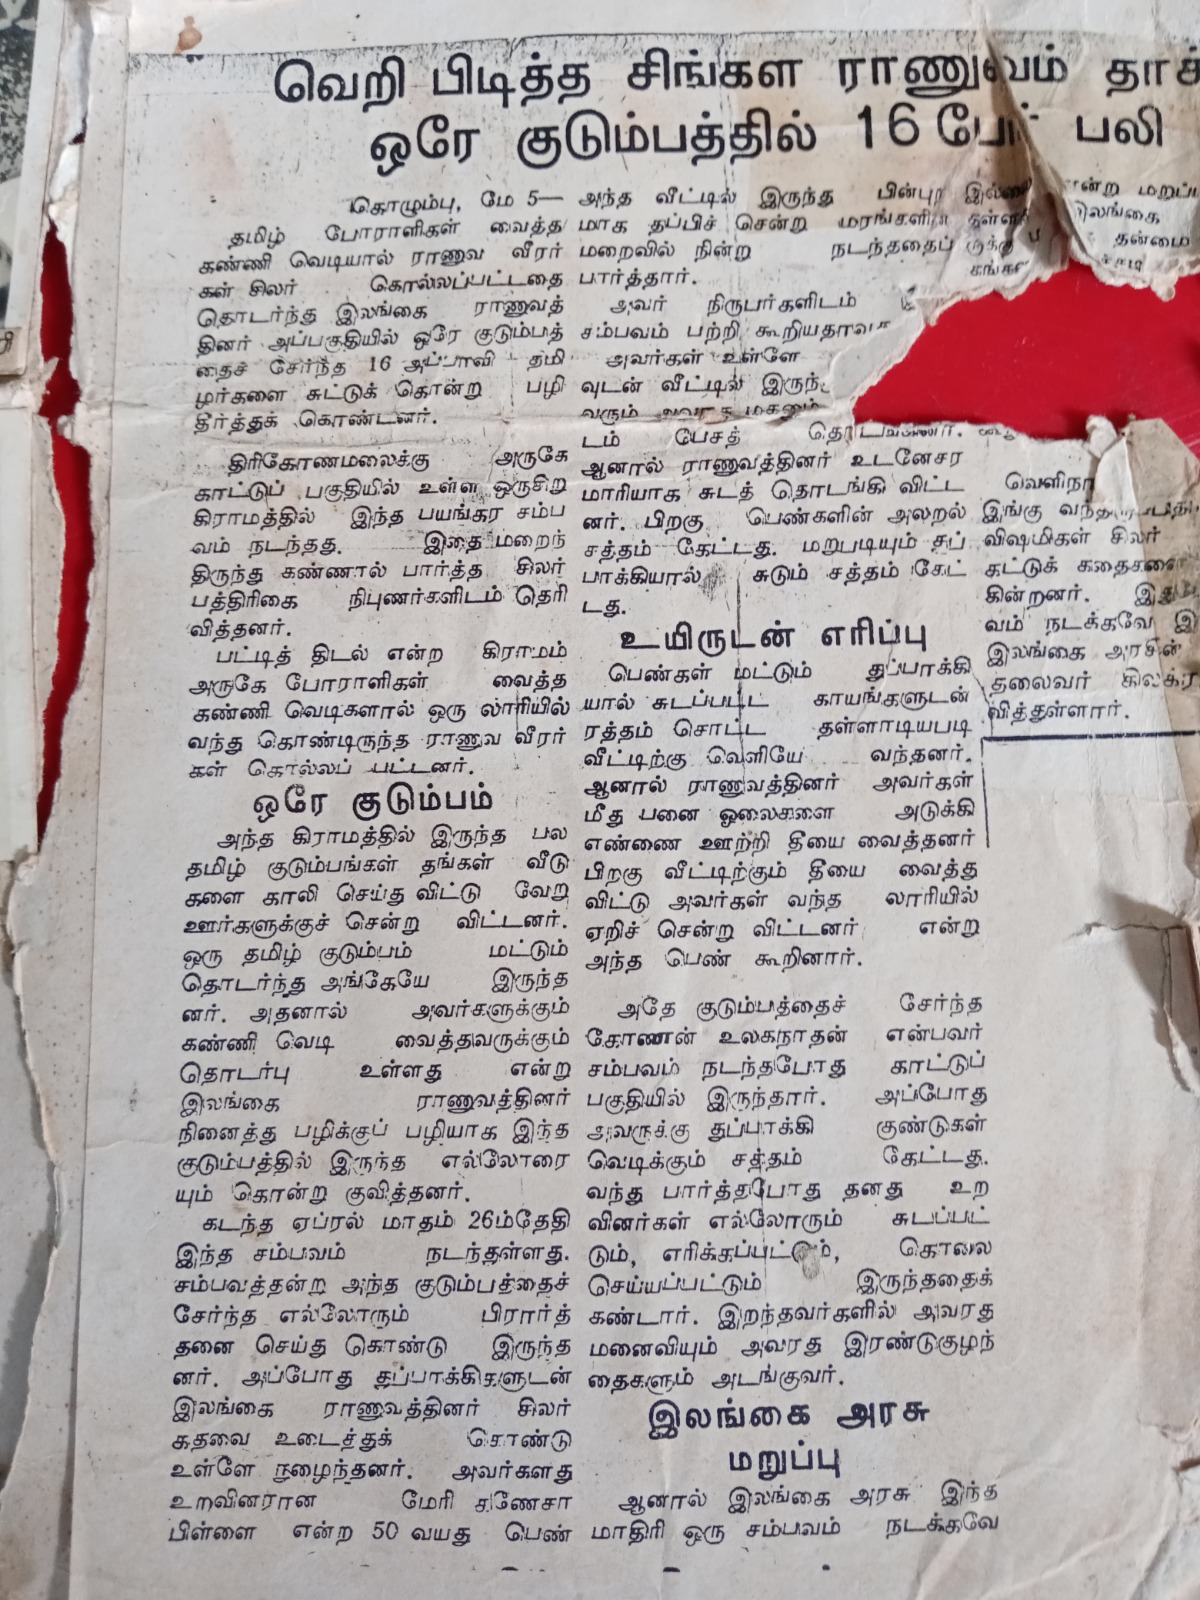 வெறி பிடித்த சிங்கள ராணுவம்
ஒரே குடும்பத்தில் 16 பேர் பலி
கொழும்பு, மே 5—
தமிழ் போராளிகள் வைத்த
கண்ணி வெடியால் ராணுவ வீரர்
கள் சிலர் கொல்லப்பட்டதை
தொடர்ந்து இலங்கை ராணுவத்
தினர் அப்பகுதியில் ஒரே குடும்பத்
தைச் சேர்ந்த 16 அப்பாவி தமி
ழர்களை சுட்டுக் கொன்று பழி
தீர்த்துக் கொண்டனர்.
திரிகோணமலைக்கு அருகே
காட்டுப் பகுதியில் உள்ள ஒருசிறு
கிராமத்தில் இந்த பயங்கர சம்ப
வம் நடந்தது. இதை மறைந்
திருந்து கண்ணால் பார்த்த சிலர்
பத்திரிகை நிபுணர்களிடம் தெரி
வித்தனர்.
பட்டித் திடல் என்ற கிராமம்
அருகே போராளிகள் வைத்த
கண்ணி வெடிகளால் ஒரு லாரியில்
வந்து கொண்டிருந்த ராணுவ வீரர்
கள் கொல்லப் பட்டனர்.
ஒரே குடும்பம்
அந்த கிராமத்தில் இருந்த பல
தமிழ் குடும்பங்கள் தங்கள் வீடு
களை காலி செய்து விட்டு வேறு
ஊர்களுக்குச் சென்று விட்டனர்.
ஒரு தமிழ் குடும்பம் மட்டும்
தொடர்ந்து அங்கேயே இருந்த
னர். அதனால் அவர்களுக்கும்
கண்ணி வெடி வைத்தவருக்கும்
தொடர்பு உள்ளது என்று
இலங்கை ராணுவத்தினர்
நினைத்து பழிக்குப் பழியாக இந்த
குடும்பத்தில் இருந்த எல்லோரை
யும் கொன்று குவித்தனர்.
கடந்த ஏப்ரல் மாதம் 26ம்தேதி
இந்த சம்பவம் நடந்துள்ளது.
சம்பவத்தன்று அந்த குடும்பத்தைச்
சேர்ந்த எல்லோரும் பிரார்த்
தனை செய்து கொண்டு இருந்த
னர். அப்போது துப்பாக்கிகளுடன்
இலங்கை ராணுவத்தினர் சிலர்
கதவை உடைத்துக் கொண்டு
உள்ளே நுழைந்தனர். அவர்களது
உறவினரான மேரி கணேசா
பிள்ளை என்ற 50 வயது பெண்
அந்த வீட்டில் இருந்த பின்புற
மாக தப்பிச் சென்று மரங்களின்
மறைவில் நின்று நடந்ததைப்
பார்த்தார்.
அவர் நிருபர்களிடம்
சம்பவம் பற்றி கூறியதாவது
அவர்கள் உள்ளே
வுடன் வீட்டில்
வரும் அவரது மகனும்
டம் பேசத் தொடங்கினர்.
ஆனால் ராணுவத்தினர் உடனேசர
மாரியாக சுடத் தொடங்கி விட்ட
னர். பிறகு பெண்களின் அலறல்
சத்தம் கேட்டது. மறுபடியும் துப்
பாக்கியால் சுடும் சத்தம் கேட்
டது.
உயிருடன் எரிப்பு
பெண்கள் மட்டும் துப்பாக்கி
யால் சுடப்பட்ட காயங்களுடன்
ரத்தம் சொட்ட தள்ளாடியபடி
வீட்டிற்கு வெளியே வந்தனர்.
ஆனால் ராணுவத்தினர் அவர்கள்
மீது பனை ஓலைகளை அடுக்கி
எண்ணை ஊற்றி தீயை வைத்தனர்
பிறகு வீட்டிற்கும் தீயை வைத்து
விட்டு அவர்கள் வந்த லாரியில்
ஏறிச் சென்று விட்டனர் என்று
அந்த பெண் கூறினார்.
அதே குடும்பத்தைச் சேர்ந்த
கோணான் உலகநாதன் என்பவர்
சம்பவம் நடந்தபோது காட்டுப்
பகுதியில் இருந்தார். அப்போது
அவருக்கு துப்பாக்கி குண்டுகள்
வெடிக்கும் சத்தம் கேட்டது.
வந்து பார்த்தபோது தனது உற
வினர்கள் எல்லோரும் சுடப்பட்
டும், எரிக்கப்பட்டும், கொலை
செய்யப்பட்டும் இருந்ததைக்
கண்டார். இறந்தவர்களில் அவரது
மனைவியும் அவரது இரண்டுகுழந்
தைகளும் அடங்குவர்.
இலங்கை அரசு
மறுப்பு
ஆனால் இலங்கை அரசு இந்த
மாதிரி ஒரு சம்பவம் நடக்கவே
தன்மை
இங்கு
விஷமிகள் சிலர்
கட்டுக் கதைகளை
கின்றனர்.
வம் நடக்கவே
இலங்கை அரசின்
தலைவர்
வித்துள்ளார்.